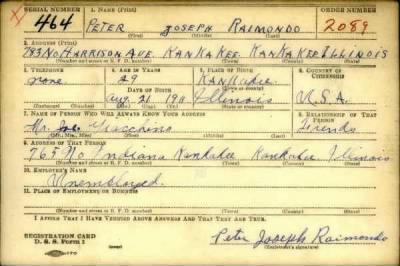 SERIAL NUMBER 1. NAME (Print) ORDER NUMBER
464 PETER JOSEPH RAIMONDO 2089
(First) (Middle) (Last)
2. ADDRESS (Print)
783 No HARRISON AVE. KANKAKEE KANKAKEE ILLINOIS
(Number and street or R. F. D. number) (Town) (County) (State)
3. TELEPHONE 4. AGE IN YEARS 5. PLACE OF BIRTH 6. COUNTRY OF CITIZENSHIP
none 29 Kankakee
DATE OF BIRTH (Town or county)
Aug. 21 1911 Illinois U.S.A.
(Exchange) (Number) (Mo.) (Day) (Yr.) (State or country)
7. NAME OF PERSON WHO WILL ALWAYS KNOW YOUR ADDRESS 8. RELATIONSHIP OF THAT PERSON
Mr. Jos. Friends
(Mr., Mrs., Miss) (First) (Middle) (Last)
9. ADDRESS OF THAT PERSON
765 No Indiana Kankakee Kankakee Illinois
(Number and street or R. F. D. number) (Town) (County) (State)
10. EMPLOYER'S NAME
Unemployed.
11. PLACE OF EMPLOYMENT OR BUSINESS
(Number and street or R. F. D. number) (Town) (County) (State)
I AFFIRM THAT I HAVE VERIFIED ABOVE ANSWERS AND THAT THEY ARE TRUE.
REGISTRATION CARD
D. S. S. Form 1 Peter Joseph Raimondo
(Registrant's signature)